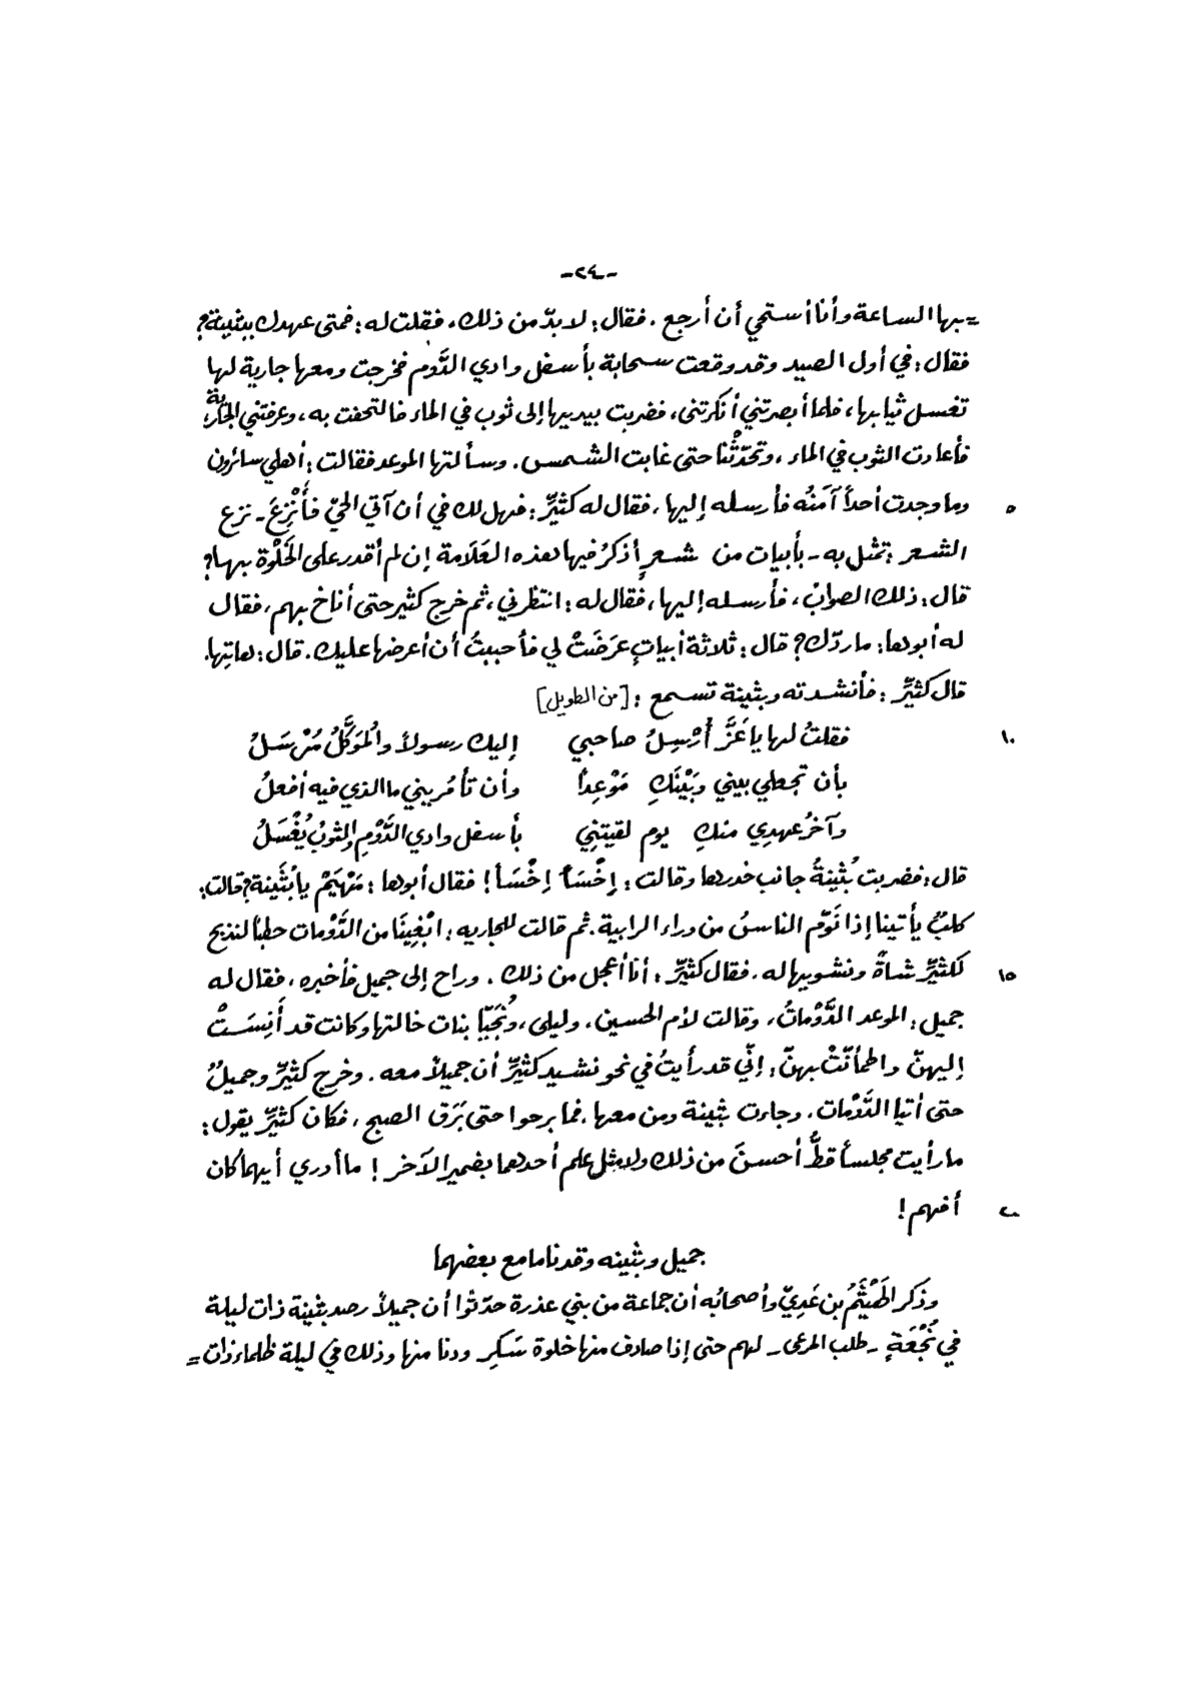 -٢٤-
= بها الساعة وأنا أستحي أن أرجع . فقال: لا بدّ من ذلك، فقلت له: فمتى عهدك ببثينة؟
فقال: في أول الصيد وقد وقعت سحابة بأسفل وادي الدَّوم فخرجت ومعها جارية لها
تغسل ثيابها، فلما أبصرتني أنكرتني، فضربت بيديها إلى ثوب في الماء فالتحفت به، وعرفتني الجارية،
فأعادت الثوب في الماء، وتحدّثْنا حتى غابت الشمس. وسألتها الموعد فقالت: أهلي سائرون
٥ وما وجدت أحداً آمَنُه فأرسله إليها، فقال له كثيِّر: فهل لك في أن آتي الحيّ فأَنْزِعَ - نزع
الشعر: تمثل به - بأبيات من شعرٍ أذكرُ فيها هذه العَلَامة إن لم أقدر على الخَلْوة بها؟
قال: ذلك الصوابُ، فأرسله إليها، فقال له: انتظرني، ثم خرج كثير حتى أناخ بهم، فقال
له أبوها: ما ردّك؟ قال: ثلاثة أبياتٍ عرَضَتْ لي فأحببتُ أن أعرضها عليك. قال: هاتِها.
قال كثيِّر: فأنشدته وبثينة تسمع: [من الطويل]
١٠ فقلتُ لها يا عَزَّ أُرْسِلُ صاحبي إليك رسولاً والمُوَكَّلُ مُرْسَلُ
بأن تجعلي بيني وبَيْنَكِ مَوْعِداً وأن تأمُريني ما الذي فيه أفعلُ
وآخرُ عهدِي منكِ يوم لقيتنِي بأسفل وادي الدَّوْمِ والثوبُ يُغْسَلُ
قال: فضربت بُثينةُ جانب خدرها وقالت: إخْسَأْ إخْسَأ! فقال أبوها: مَهْيَمْ يا بُثَينة؟ قالت:
كلبٌ يأتينا إذا نَوّم الناسُ من وراء الرابية. ثم قالت للجاريه: ابْغِينَا من الدَّوْمات حطباً لنذبح
١٥ لكثيِّر شاةً ونشويها له. فقال كثيِّر: أنا أعجل من ذلك. وراح إلى جميل فأخبره، فقال له
جميل: الموعد الدَّوْماتُ، وقالت لأم الحسين، وليلى، ونُجَيّا بنات خالتها وكانت قد أَنِسَتْ
إليهنّ واطمأنّتْ بهنّ: إنّي قد رأيتُ في نحو نشيد كثيِّر أن جميلاً معه. وخرج كثيِّر وجميلٌ
حتى أتيا الدَّوْمات، وجاءت بثينة ومن معها، فما برحوا حتى بَرَق الصبح، فكان كثيِّر يقول:
ما رأيت مجلساً قطُّ أحسنَ من ذلك ولا مثل علم أحدهما بضمير الآخر! ما أدري أيهما كان
٢٠ أفهم!
جميل وبثينه وقد ناما مع بعضهما
وذَكر الهَيْثَمُ بن عَدِيّ وأصحابُه أن جماعة من بني عذرة حدّثوا أن جميلاً رصد بثينة ذات ليلة
في نُجْعَةٍ - طلب المرعى - لهم حتى إذا صادف منها خلوة سَكِر ودنا منها وذلك في ليلة ظلماء ذات =